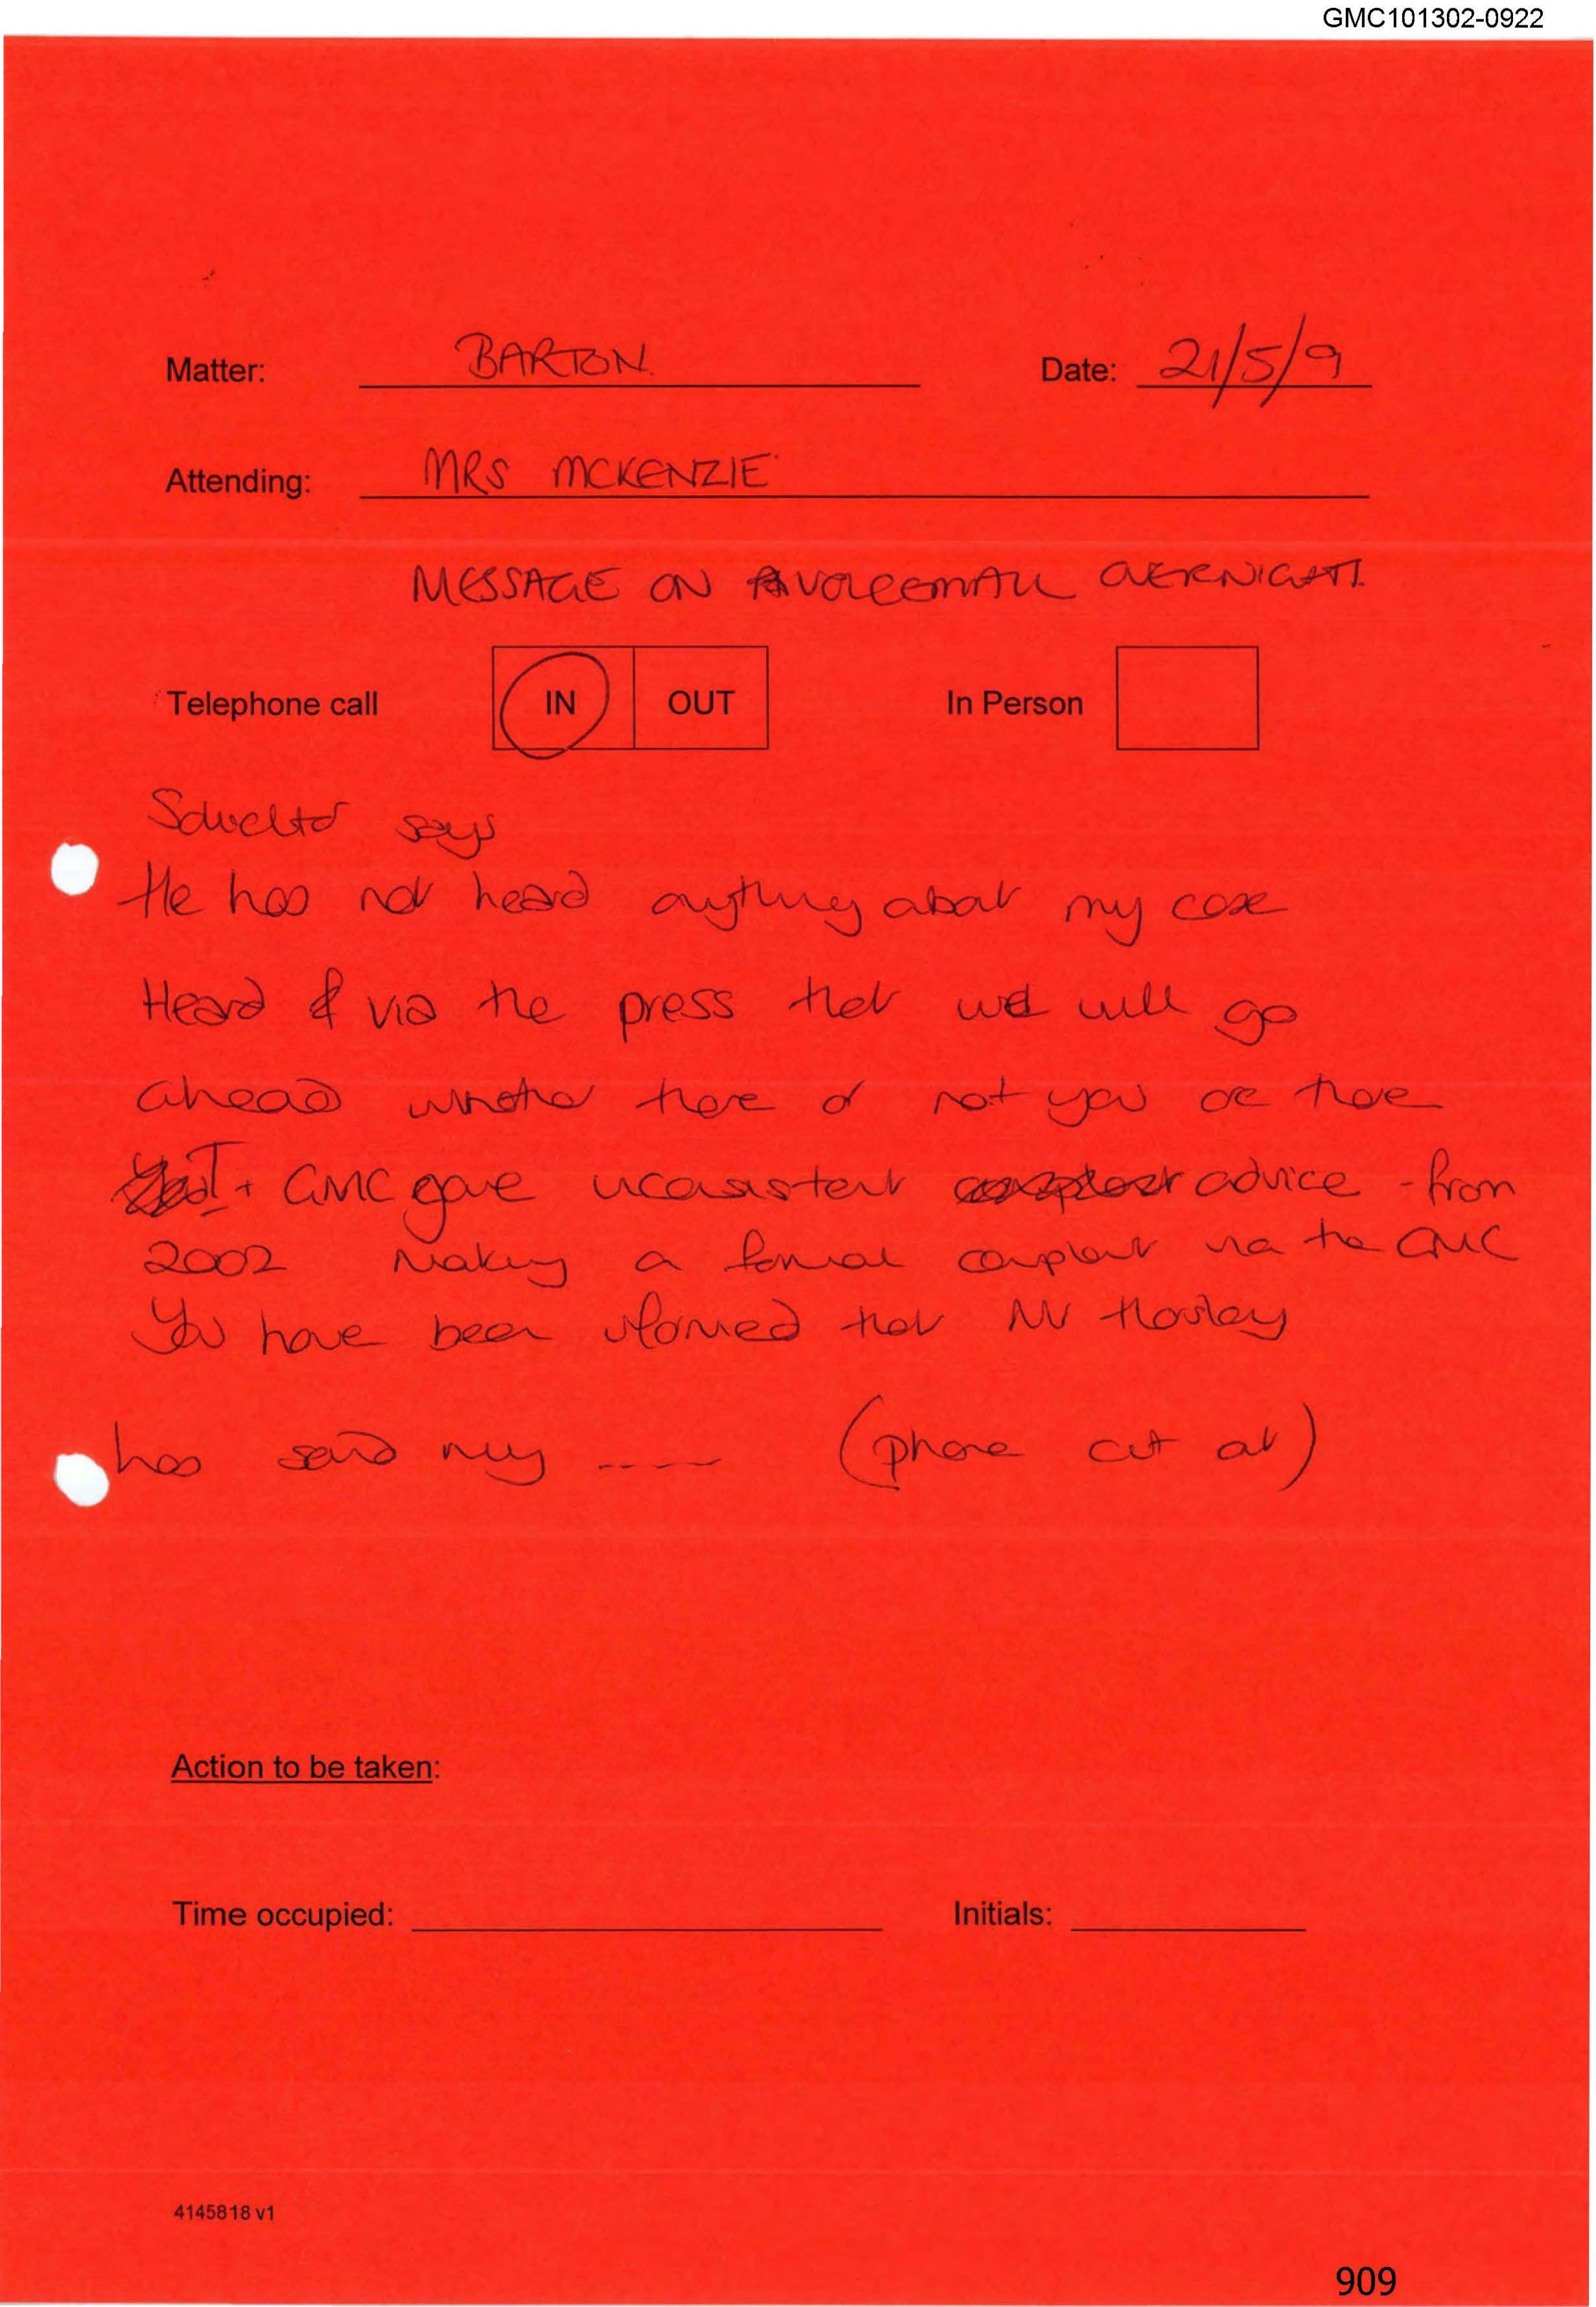 GMC101302-0922
Matter: BARTON.
Date: 21/5/9
Attending: MRS MCKENZIE
MESSAGE ON VOICEMAIL OVERNIGHT.
Telephone call IN OUT In Person
Solicitor says
He has not heard anything about my case
Heard via the press that we will go
ahead whether there or not you are there
+ GMC gave inconsistent advice - from
2002 Making a formal complaint via the GMC
You have been informed that Mr
has said my ----- (phone cut out)
Action to be taken:
Time occupied:
Initials:
4145818 v1
909